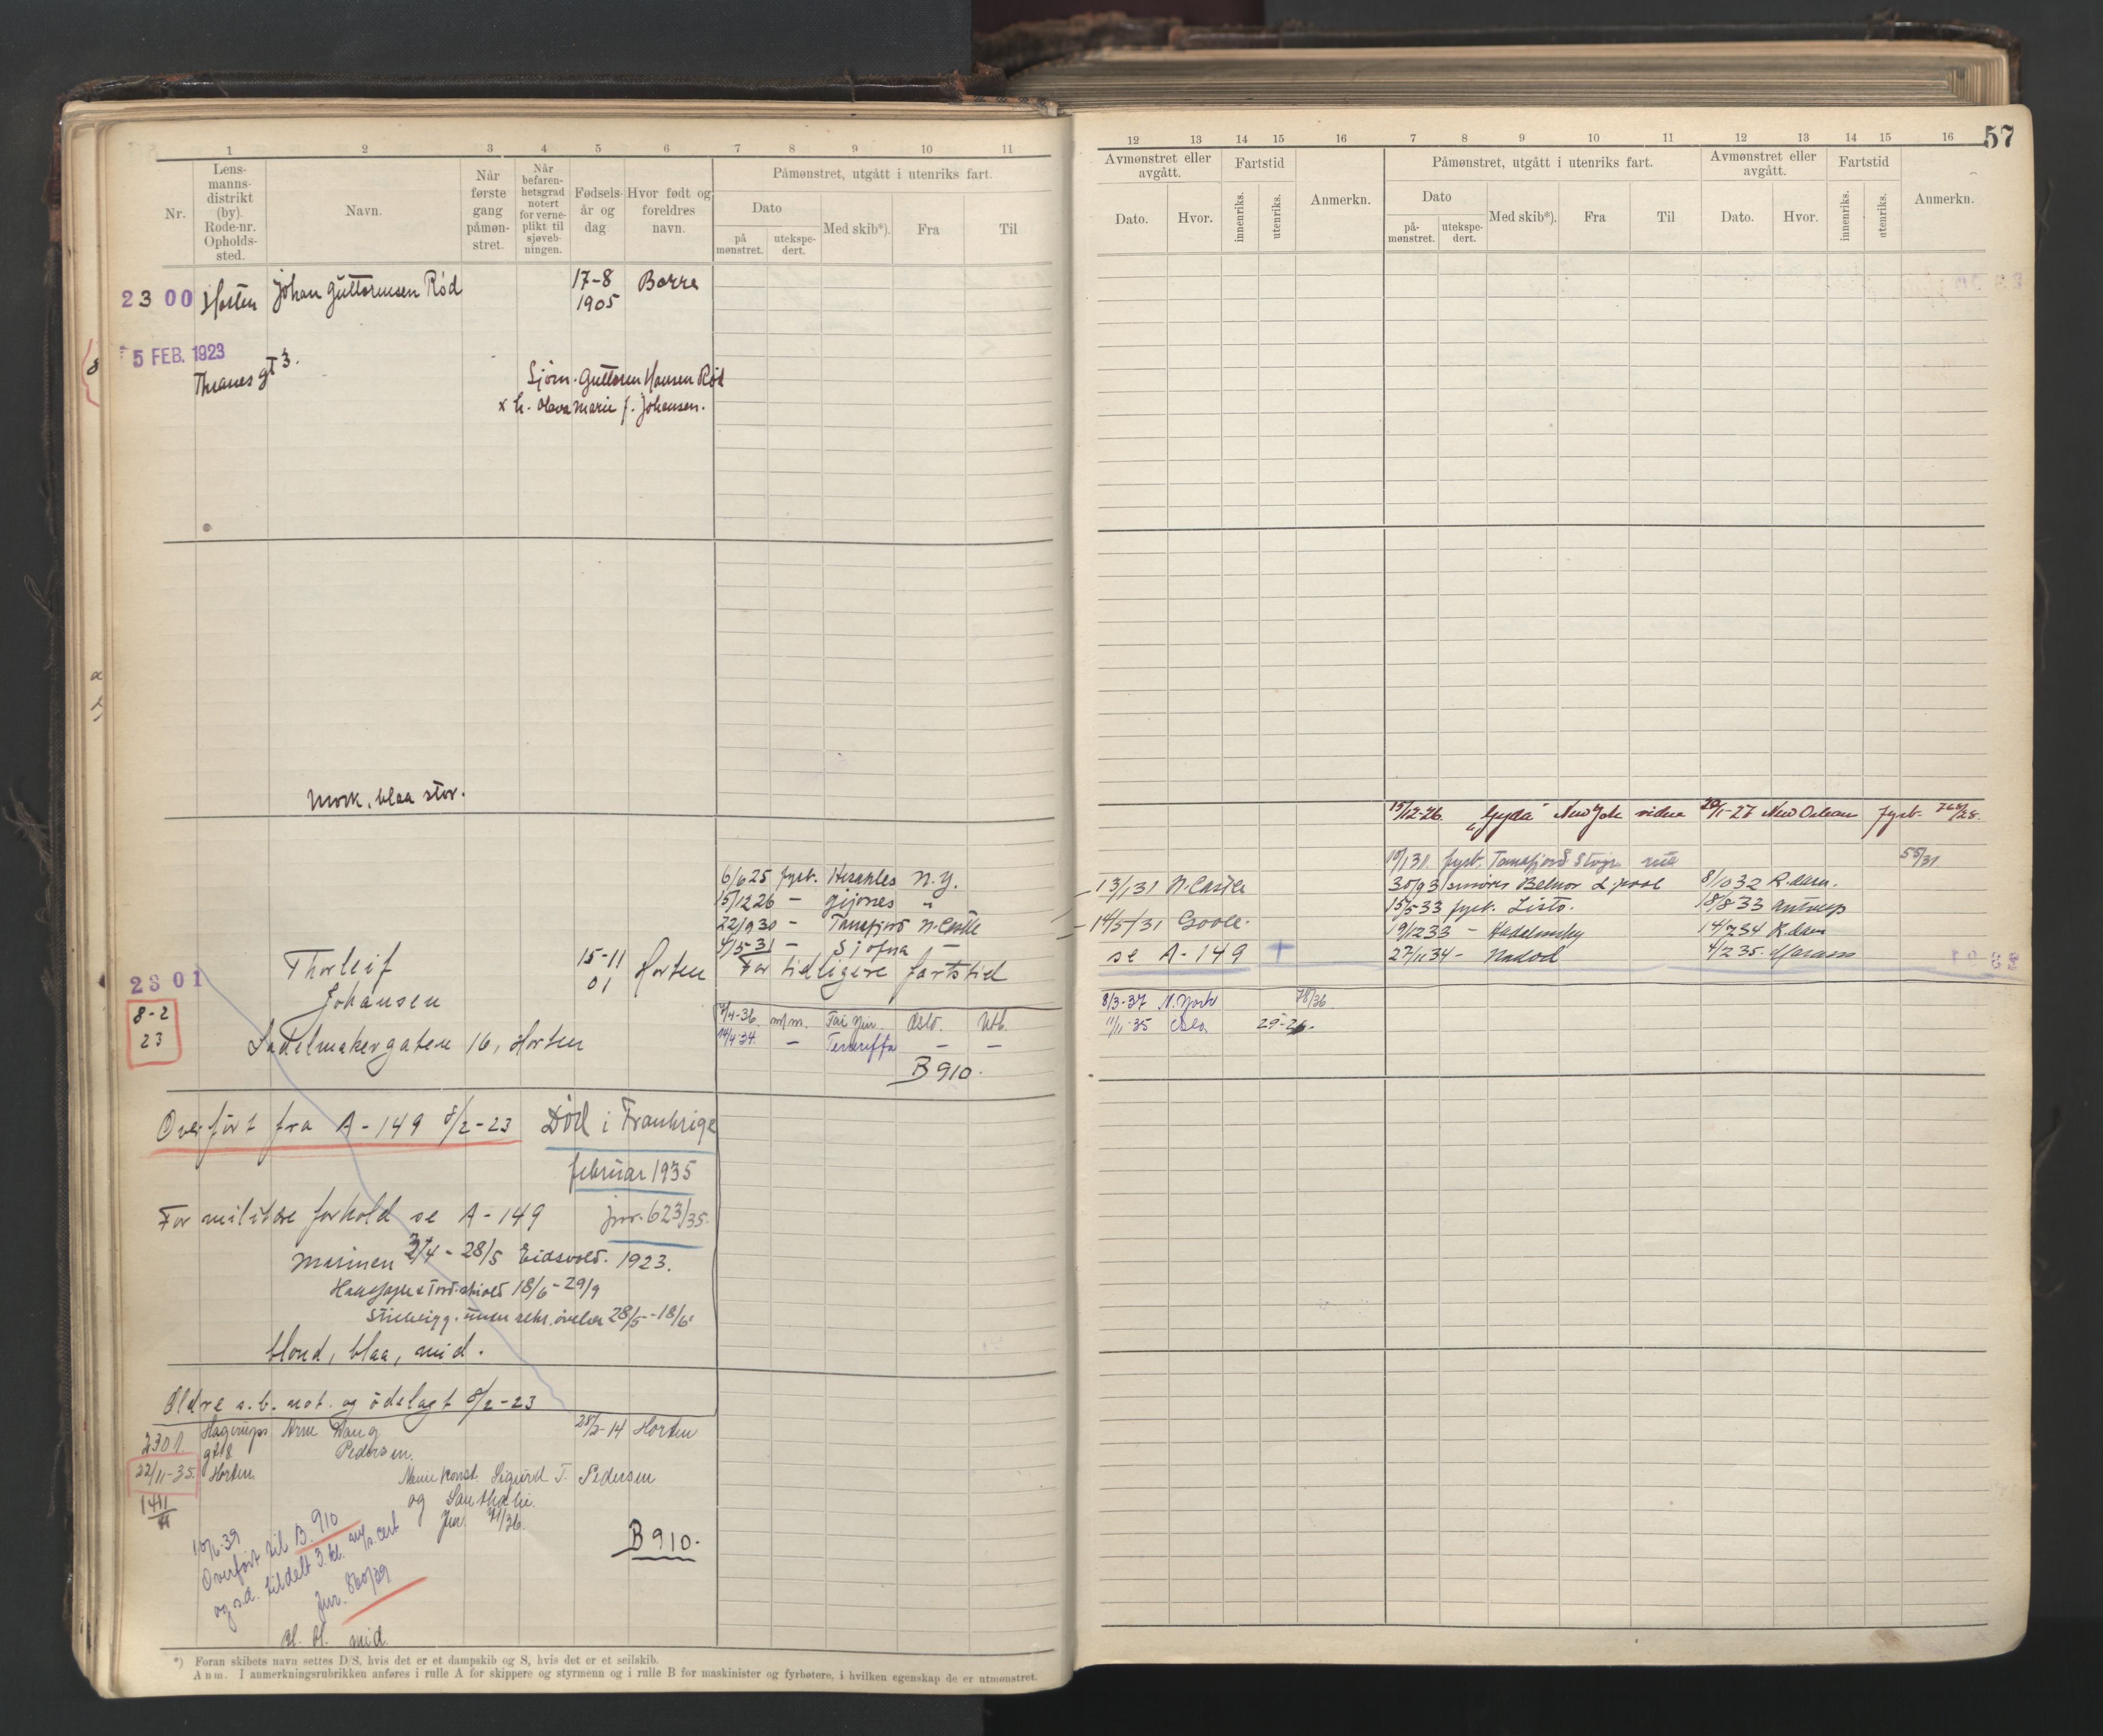 57
1 2 3 4 5 6 7 8 9 10 11
Nr.
Lens-
manns-
distrikt
(by).
Rode-nr.
Opholds-
sted.
Navn.
Når
første
gang
påmøn-
stret.
Når
befaren-
hetsgrad
notert
for verne-
plikt til
sjøveb-
ningen.
Fødsels-
år og
dag
Hvor født og
foreldres
navn.
Påmønstret, utgått i utenriks fart.
Dato
på
mønstret.
utekspe-
dert.
Med skib*).
Fra
Til
2300 Horten Johan Guttormsen Rød 17-8 Borre
1905
5 FEB. 1923
Thranes gt 3.
Sjøm. Guttorm Hansen Rød
x h. Olava Marie f. Johansen.
Mørk, blaa stor.
6/6 25 fyrb. Herakles N.Y.
15/12 26 — "
22/9 30 — Tanafjord N. Castle
4/5-31 — Sjofna —
For tidligere fartstid
2301 Thorleif 15-11 Horten
Johansen 01
8-2
23
Sadelmakergaten 16, Horten
7/4-36. m/m. Tai Yin. Oslo. Utb.
14/4 34 — Teneriffa — —
B 910.
Overført fra A-149 8/2-23 Død i Frankrige
februar 1935
For militære forhold se A-149 jnr. 623/35.
Marinen 27/4 - 28/5 Eidsvold. 1923.
18/6 - 29/9
28/5 - 18/6
blond, blaa, mid.
Eldre s.b. not. og ødelagt 8/2-23
2301. Hagerups Arne Wang 28/2-14 Horten
gt 8 Pedersen.
22/11-35. Horten. Sigurd T. Pedersen
og
Jnr 71/36.
1411
B 910.
10/6-39
Overført til B. 910
og s.d. tildelt 3. kl. m/s. cert
Jnr. 860/39
Bl. bl. mid.
*) Foran skibets navn settes D/S, hvis det er et dampskib og S, hvis det er et seilskib.
Anm. I anmerkningsrubrikken anføres i rulle A for skippere og styrmenn og i rulle B for maskinister og fyrbøtere, i hvilken egenskap de er utmønstret.
12 13 14 15 16 7 8 9 10 11 12 13 14 15 16
Avmønstret eller
avgått.
Fartstid
Dato.
Hvor.
innenriks.
utenriks.
Anmerkn.
Påmønstret, utgått i utenriks fart.
Dato
på-
mønstret.
utekspe-
dert.
Med skib*).
Fra
Til
Avmønstret eller
avgått.
Fartstid
Dato.
Hvor.
innenriks.
utenriks.
Anmerkn.
15/12-26. "Gyda" New York videre 20/1-27 New Orlean fyrb.
10/1 31. fyrb. Tanafjord 55/31
13/1 31 N. Castle 30/9 31 Belnor L. pool 8/10 32 R. dam.
15/5-33 fyrb. Listo. 18/8 33 Antwerp
14/5/31 Goole. 19/12 33 — 14/7 34 R. dam
se A-149 27/11 34 — Nadod 4/2 35.
8/3-37 N. York 78/36
11/11-35 Oslo